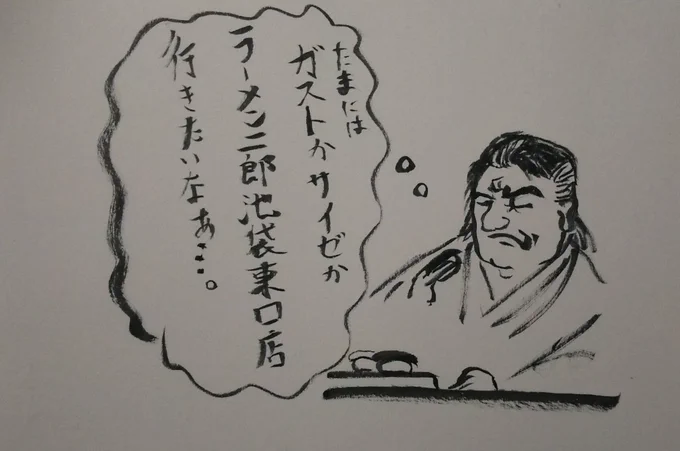 たまには
ガストかサイゼか
ラーメン二郎池袋東口店
行きたいなぁ…。